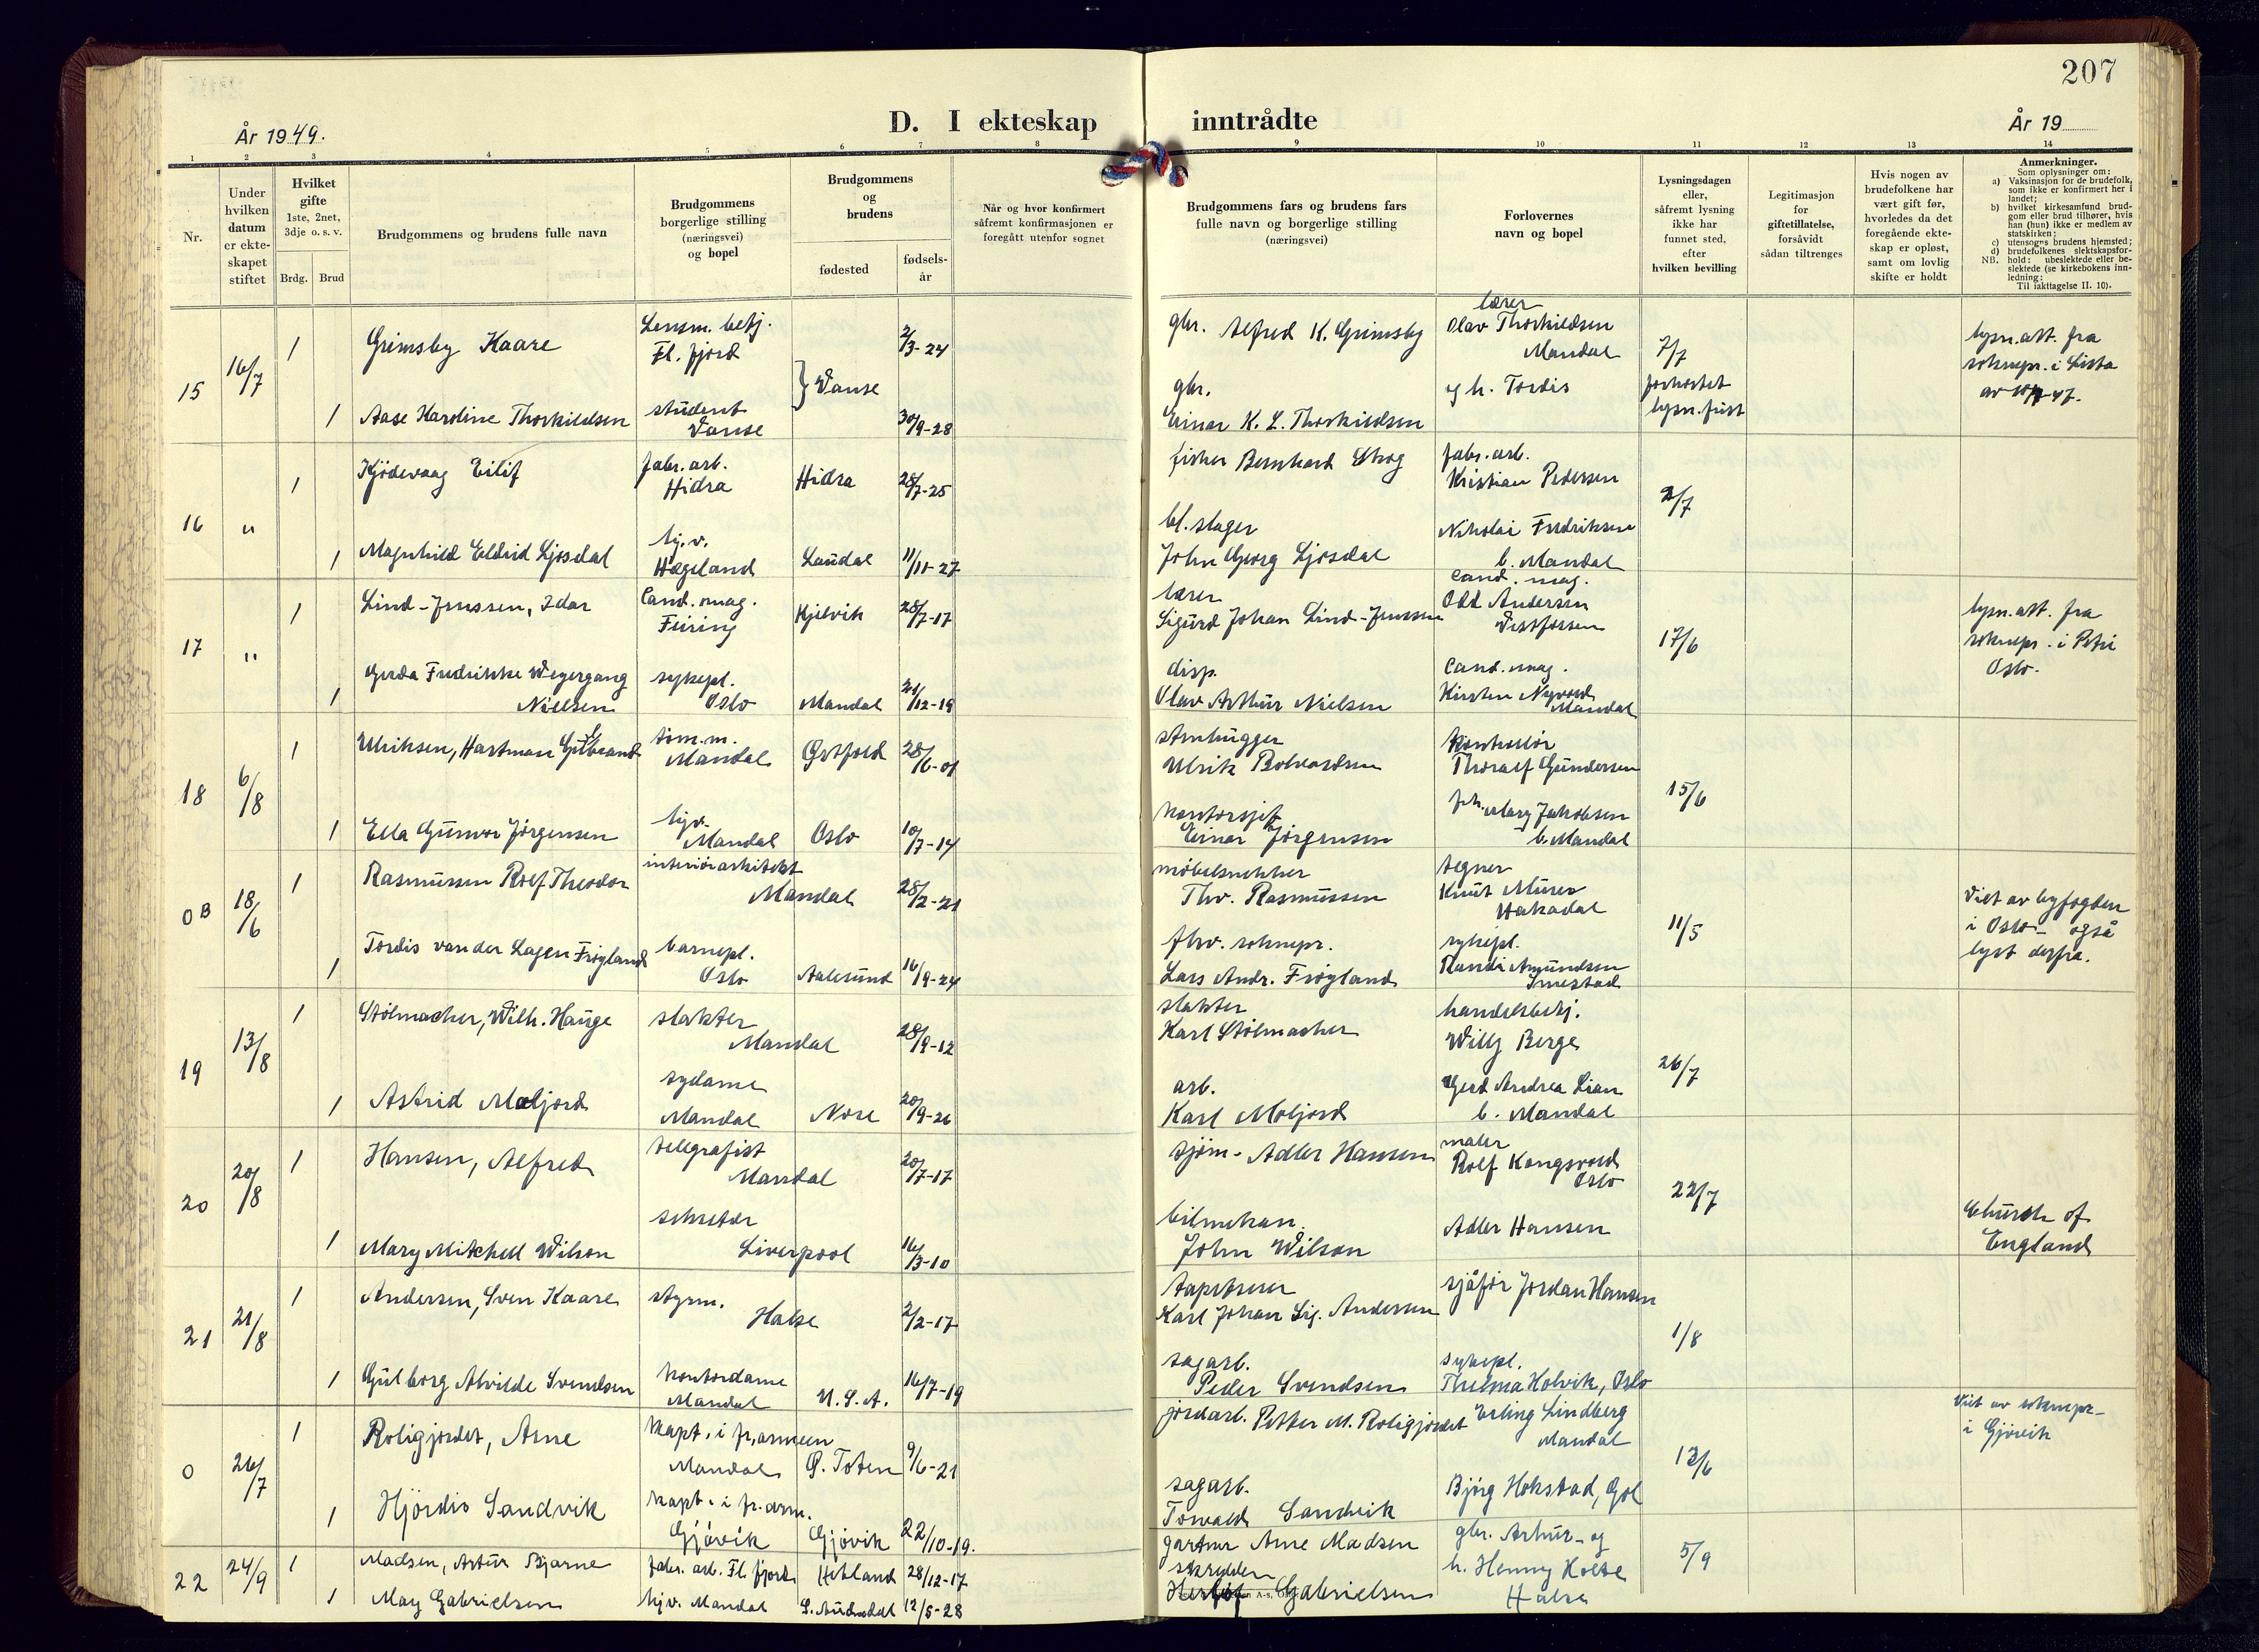 207
År 1949.
D. I ekteskap inntrådte
År 19
1 2 3 4 5 6 7 8 9 10 11 12 13 14
Nr.
Under hvilken datum er ekteskapet stiftet
Hvilket gifte
1ste, 2net, 3dje o. s. v.
Brdg. Brud
Brudgommens og brudens fulle navn
Brudgommens borgerlige stilling (næringsvei) og bopel
Brudgommens og brudens
fødested
fødsels-år
Når og hvor konfirmert såfremt konfirmasjonen er foregått utenfor sognet
Brudgommens fars og brudens fars fulle navn og borgerlige stilling (næringsvei)
Forlovernes navn og bopel
Lysningsdagen eller, såfremt lysning ikke har funnet sted, efter hvilken bevilling
Legitimasjon for giftetillatelse, forsåvidt sådan tiltrenges
Hvis nogen av brudefolkene har vært gift før, hvorledes da det foregående ekteskap er opløst, samt om lovlig skifte er holdt
Anmerkninger.
Som oplysninger om:
a) Vaksinasjon for de brudefolk, som ikke er konfirmert her i landet;
b) hvilket kirkesamfund brudgom eller brud tilhører, hvis han (hun) ikke er medlem av statskirken;
c) utensogns brudens hjemsted;
d) brudefolkenes slektskapsforhold: ubeslektede eller beslektede (se kirkebokens innledning;
NB. Til iakttagelse II. 10).
15 16/7 1 Grimsby Kaare Lensm. betj. Fl. fjord 2/3-24 gbr. Alfred K. Grimsby lærer Olav Thorkildsen Mandal 7/7 lysn.att. fra soknepr. i Lista
} Vanse
1 Aase Karoline Thorkildsen student Vanse 30/9-28 gbr. Einar K. L. Thorkildsen og h. Tordis forkortet lysn.frist
16 " 1 Kjödevaag Eilif fabr. arb. Hidra Hidra 28/7-25 fisker Bernhard Skog fabr. arb. Kristian Pedersen 2/7
1 Magnhild Eldrid Ljosdal hj.v. Hægeland Laudal 11/11-27 bl.slager John Georg Ljosdal Nikolai Fredriksen b. Mandal
17 " 1 Lind-Jenssen, Idar Cand. mag. Feiring Kjelvik 28/7-17 lærer Sigurd Johan Lind-Jenssen Cand. mag. Odd Andersen Vestfossen 17/6 lysn.att. fra soknepr. i Petri Oslo.
1 Gerda Fredrikke Weyergang Nielsen sykepl. Oslo Mandal 21/12-19 disp. Olav Arthur Nielsen Cand. mag. Kirsten Nyvold Mandal
18 6/8 1 Ulriksen, Hartman Gulbrand tøm.m. Mandal Østfold 28/6-01 stenhugger Ulrik Bolvardsen Kontrollør Thoralf Gundersen 15/6
1 Ella Gunvor Jörgensen hjv. Mandal Oslo 10/7-14 kontorsjef Einar Jörgensen frk. Mary Jakobsen b. Mandal
0B 18/6 1 Rasmussen Rolf Theodor interiørarkitekt Mandal 28/2-21 møbelsnekker Thv. Rasmussen tegner Knut Murer Hakadal 11/5 Viet av byfogden i Oslo - også lyst derfra.
1 Tordis van der Lagen Fröyland barnepl. Oslo Aalesund 16/9-24 fhv. soknepr. Lars Andr. Fröyland sykepl. Randi Amundsen
19 13/8 1 Stölmacher, Wilh. Hauge slakter Mandal 28/9-12 slakter Karl Stölmacher handelsbetj. Willy Berge 26/7
1 Astrid Moljord sydame Mandal Nore 20/9-26 arb. Karl Moljord Gerd Andrea Lian b. Mandal
20 20/8 1 Hansen, Alfred telegrafist Mandal 20/7-17 sjöm- Adler Hansen maler Rolf Kongsvold Oslo 22/7
1 Mary Mitchell Wilson sekretær Liverpool 16/3-10 bilmekan. John Wilson Adler Hansen Church of England
21 21/8 1 Andersen, Sven Kaare styrm. Halse 2/2-17 tapetserer Karl Johan Sig. Andersen sjåför Jordan Hansen 1/8
1 Gulborg Alvilde Svendsen kontordame Mandal U.S.A. 16/7-19 sagarb. Peder Svendsen sykepl. Thelma Holvik, Oslo
0 26/7 1 Roligjordet, Arne kapt. i fr. armeen Mandal Ö. Toten 9/6-21 jordarb. Petter M. Roligjordet Erling Lindberg Mandal 13/6 Viet av soknepr- i Gjövik
1 Hjördis Sandvik kapt. i fr. arm. Gjövik Gjövik 22/10-19. sagarb. Torvald Sandvik Björg Hokstad, Gol
22 24/9 1 Madsen, Artur Bjarne fabr. arb. Fl. fjord Hetland 28/12-17 gartner Arne Madsen gbr. Arthur- og 5/9
1 May Gabrielsen hjv. Mandal S. Audnedal 12/5-28 skredder Gabrielsen h. Henny Holte Halse